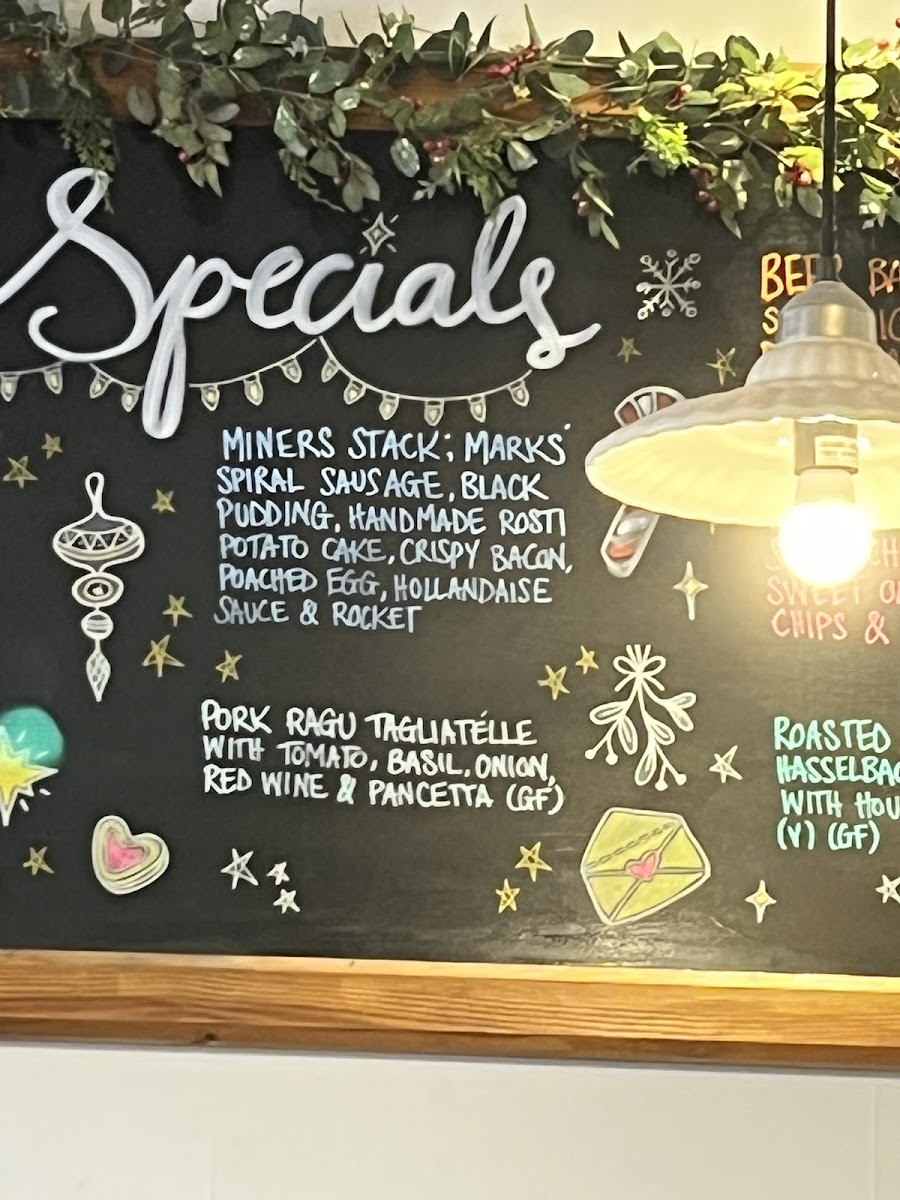 Specials
MINERS STACK; MARKS'
SPIRAL SAUSAGE, BLACK
PUDDING, HANDMADE ROSTI
POTATO CAKE, CRISPY BACON,
POACHED EGG, HOLLANDAISE
SAUCE & ROCKET
PORK RAGU TAGLIATÉLLE
WITH TOMATO, BASIL, ONION,
RED WINE & PANCETTA (GF)
BEER
SWEET
CHIPS &
ROASTED
HASSELBAC
WITH HOU
(V) (GF)